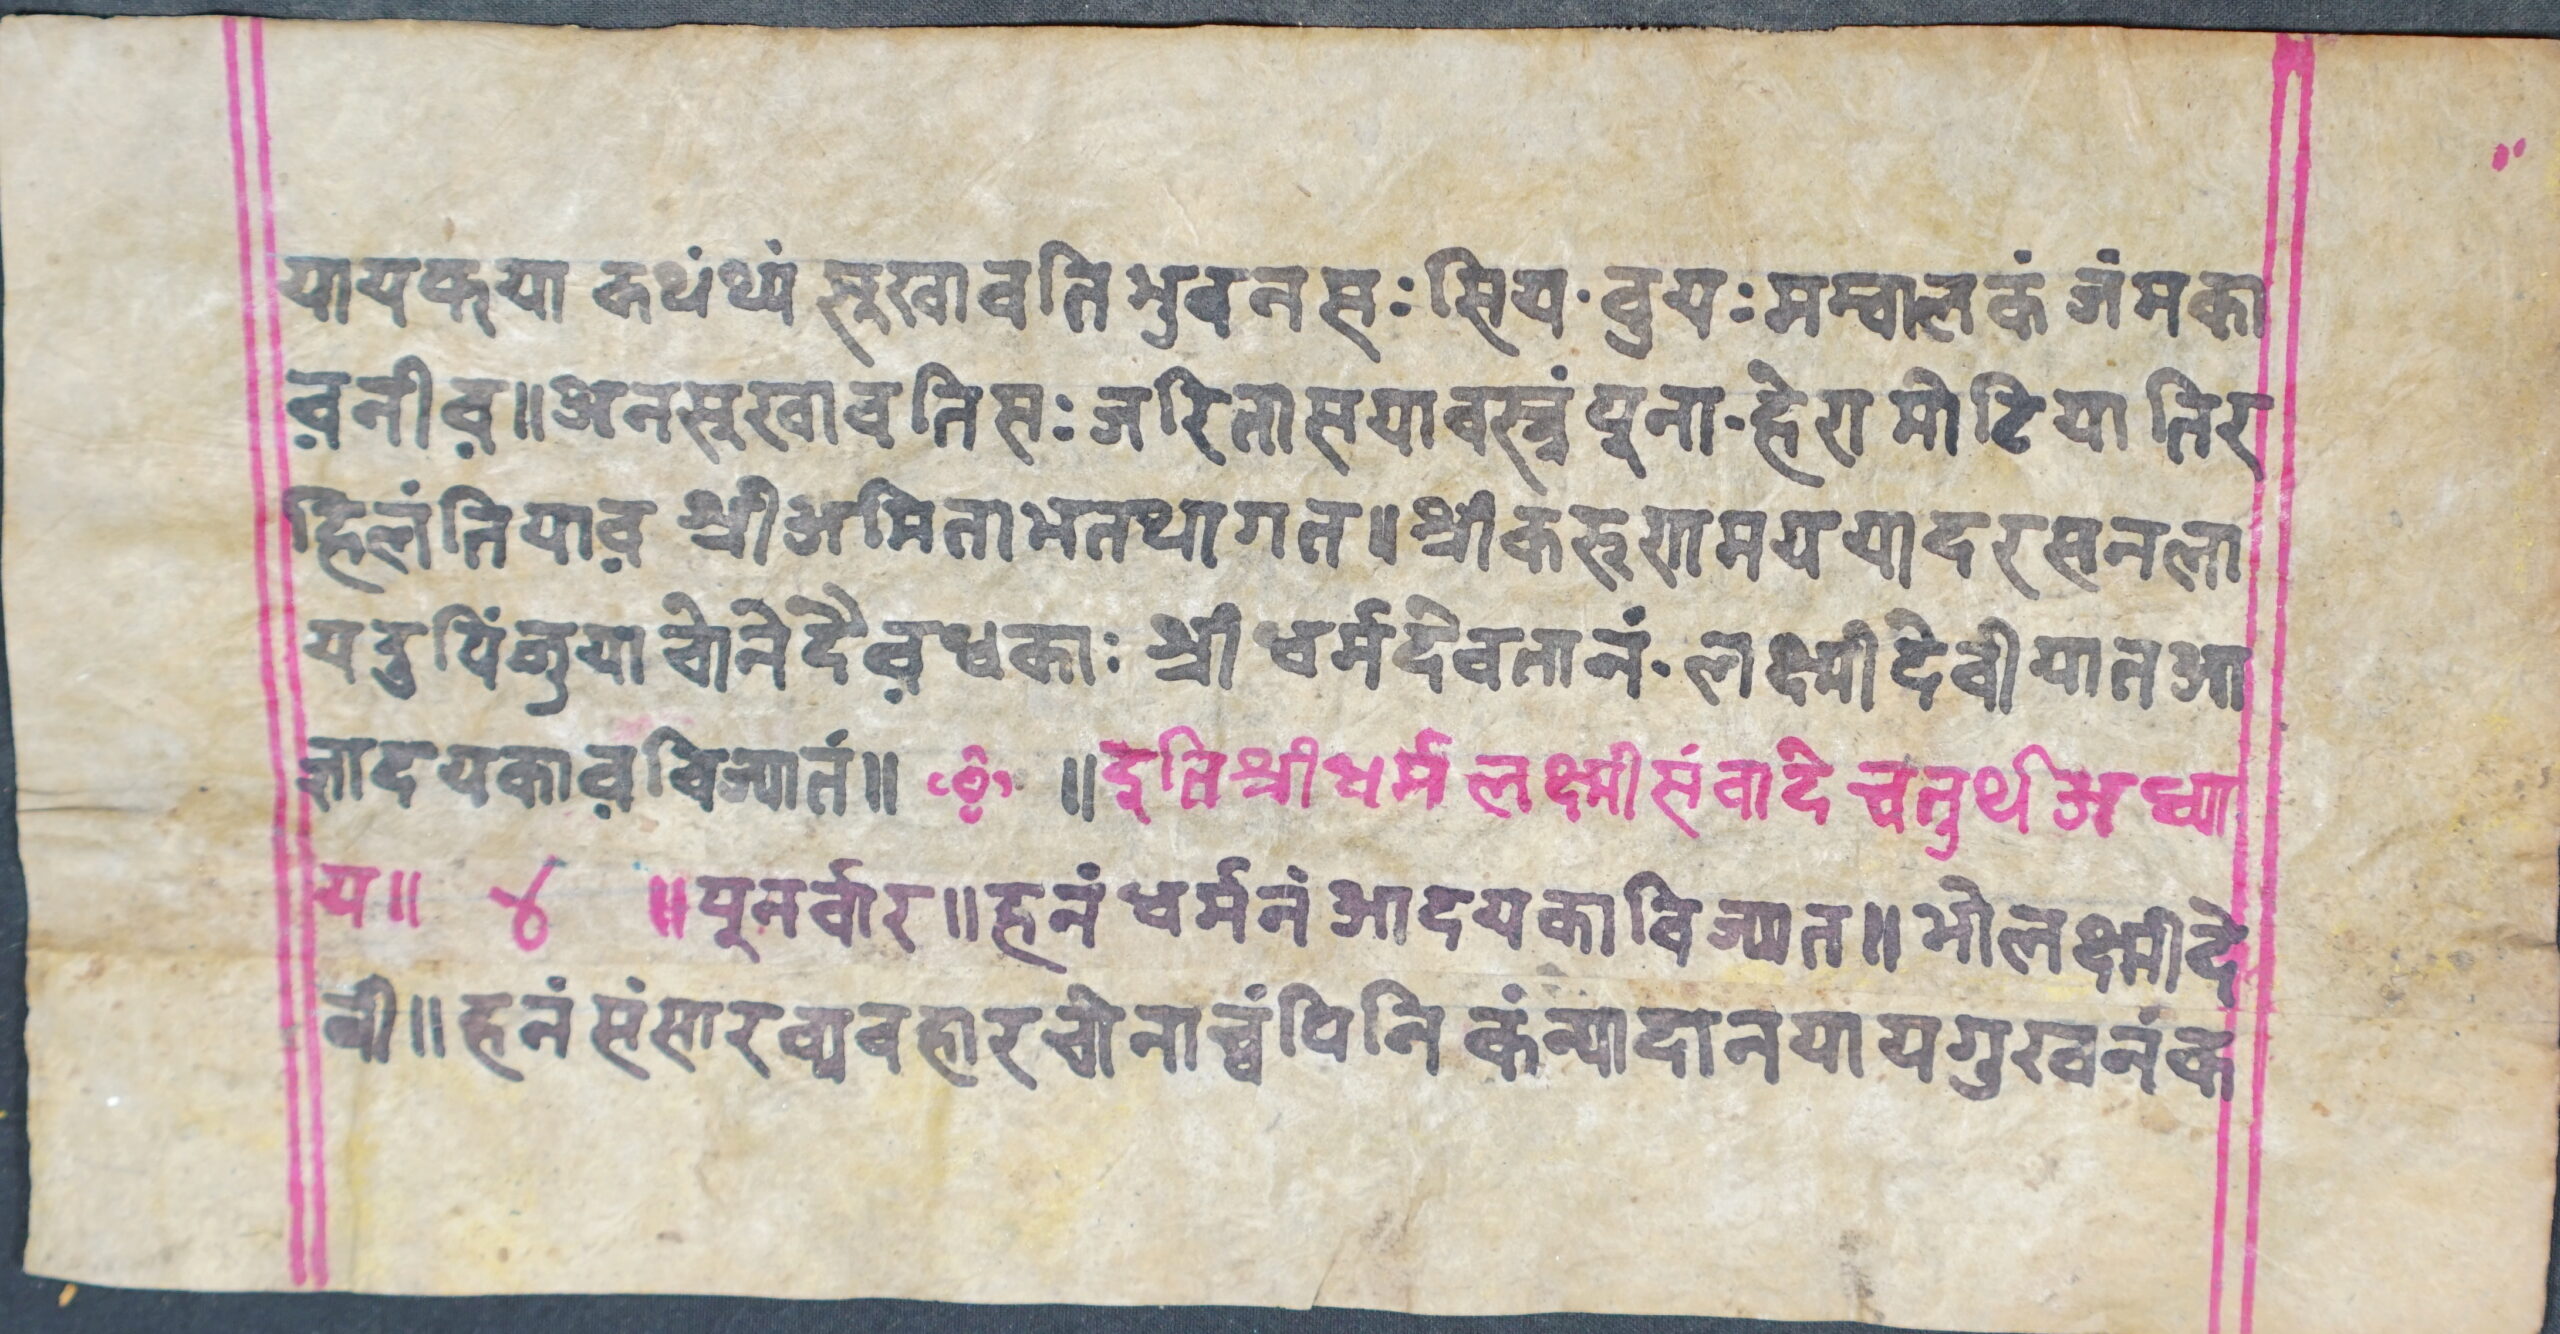 यायफया कथंथ्यं सूखावति भुवनसः सिय. वुयः मम्वालकं जंमका
व़नीव़॥अनसूखावतिसः जरितासयावस्त्रं पूना.हेरा मोटिया तिर
हिलं तियाव़ श्रीअमिताभतथागत॥श्रीकरूणामययादरसनला
यदुपिंजुया चोनेदैव़धकाः श्री धर्मदेवतानं. लक्ष्मीदेवीयातआ
ज्ञादयकाव़विज्यातं॥ ॥इति श्रीधर्म लक्ष्मीसंवादे चतुर्थ अध्या
य॥ ४ ॥पूनर्वार॥हनं धर्मनं आदयकाविज्यात॥भोलक्ष्मीदे
वी॥हनं संसारव्यवहारचोनाच्वंपिनि कंन्यादानयायगुखनंक